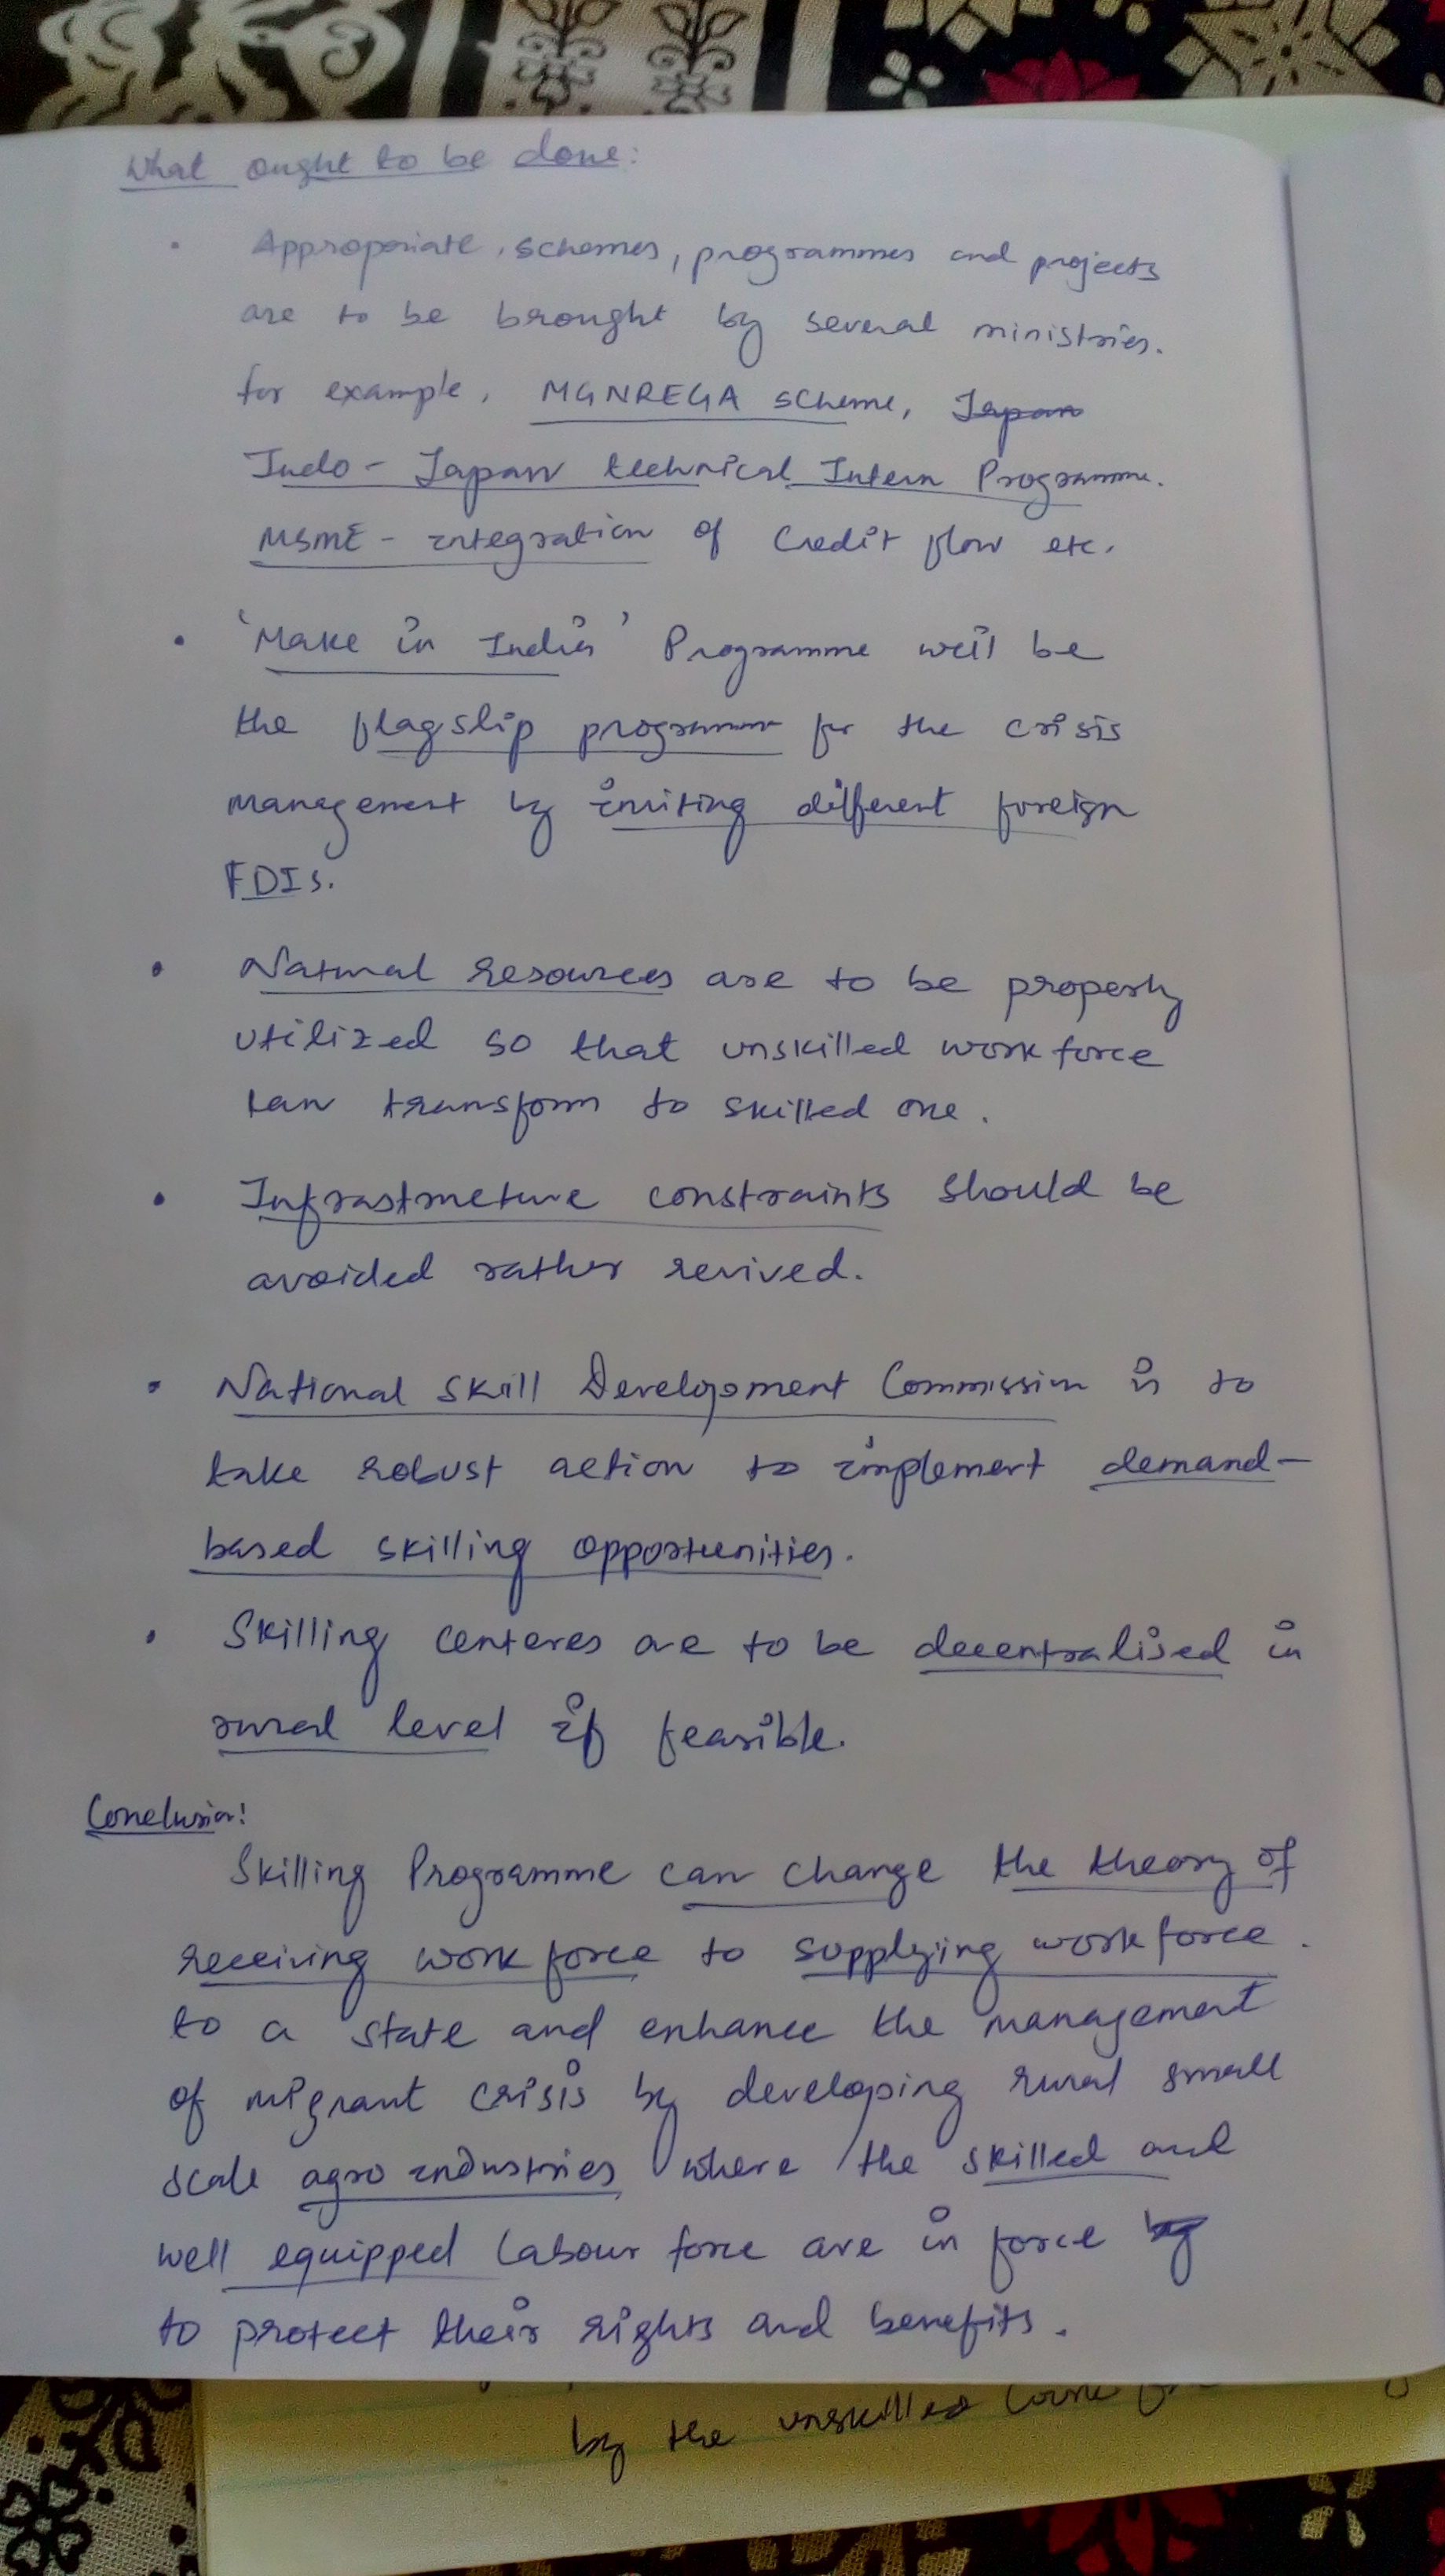 What ought to be done:
• Approporiate, schemes, programmes and projects
are to be brought by several ministries.
for example, MGNREGA scheme, Japan
Indo - Japan technical Intern Programme.
MSME - integration of Credit flow etc.
• 'Make in India' Programme will be
the flagship programme for the crisis
management by inviting different foreign
FDIs.
• Natural resources are to be properly
utilized so that unskilled workforce
can transform to skilled one.
• Infrastructure constraints should be
avoided rather revived.
• National Skill Development Commission is to
take robust action to implement demand-
based skilling opportunities.
• Skilling centeres are to be decentralised in
rural level if feasible.
Conclusion:
Skilling Programme can change the theory of
receiving workforce to supplying workforce.
to a state and enhance the management
of migrant crisis by developing rural small
scale agro industries where the skilled and
well equipped labour force are in force by
to protect their rights and benefits.
by the unskilled